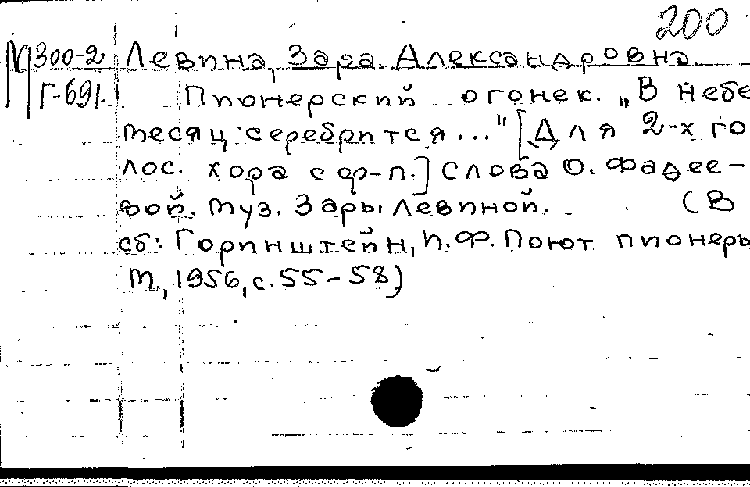 200
М 300-2 Левина, Зара Александровна
Г-691. Пионерский огонек. „В небе
месяц серебрится..." [Для 2-х го
лос. хора с ф-п.] Слова О. Фадее-
вой. Муз. Зары Левиной. (В
сб: Горинштейн, П.Ф. Поют пионеры
М, 1956, с. 55-58)